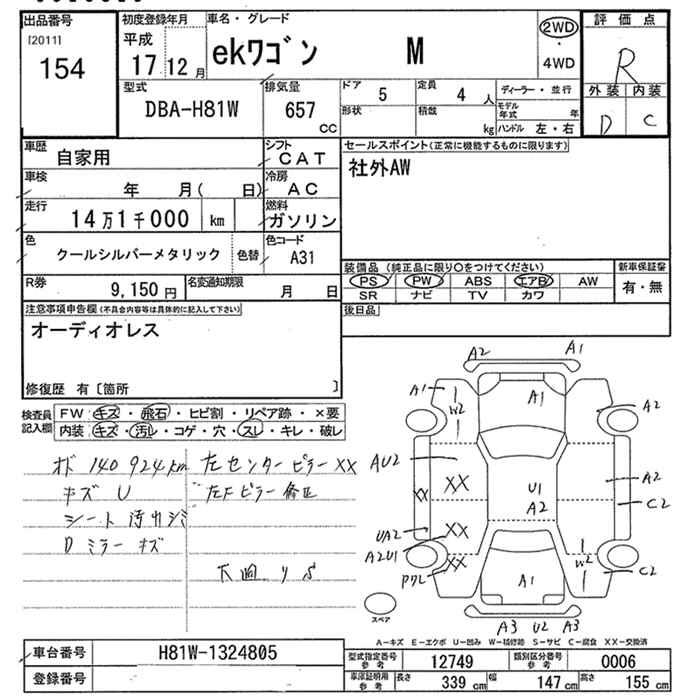 出品番号
[2011]
154
初度登録年月
平成
17 12 月
車名・グレード
ekワゴン M
2WD
・
4WD
評価点
R
外装 内装
D C
型式
DBA-H81W
排気量
657
CC
ドア 5
形状
定員 4 人
積載 kg
ディーラー・並行
モデル年式 年
ハンドル 左・右
車歴
自家用
シフト
CAT
セールスポイント(正常に機能するものに限ります)
社外AW
車検
年 月( 日)
冷房
AC
走行
14万1千000 km
燃料
ガソリン
色
クールシルバーメタリック
色替
色コード
A31
装備品 (純正品に限り○をつけてください)
新車保証書
PS PW ABS エアB AW
有・無
SR ナビ TV カワ
R券
9,150 円
名変通知期限
月 日
後日品
注意事項申告欄(不具合内容等は具体的に記入して下さい)
オーディオレス
修復歴 有〔箇所 〕
検査員記入欄
FW キズ・飛石・ヒビ割・リペア跡・×要
内装 キズ・汚レ・コゲ・穴・スレ・キレ・破レ
オド 140924km
キズ U
シート汚れシミ
Dミラーキズ
左センターピラーXX
左Fピラー修正
A2
A1
A1
W2
A1
A2
AU2
XX
XX
U1
A2
A2
C2
UA2
A2U1
XX
XX
W2
C2
A1
A3 U2 A3
スペア
A-キズ E-エクボ U-凹み W-補修跡 S-サビ C-腐食 XX-交換済
車台番号
H81W-1324805
登録番号
型式指定番号 参考
12749
類別区分番号 参考
0006
車庫証明用 参考
長さ 339 cm
幅 147 cm
高さ 155 cm